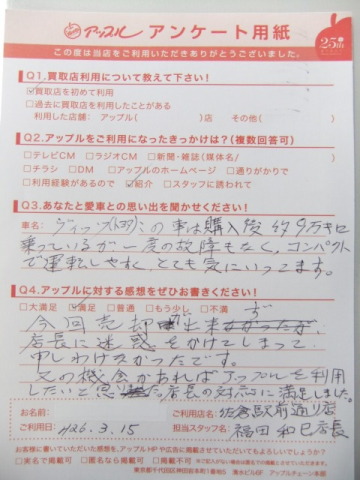 アップル アンケート用紙
25th
この度は当店をご利用いただきありがとうございました。
Q1.買取店利用について教えて下さい!
☑買取店を初めて利用
□過去に買取店を利用したことがある
利用した店舗: アップル( )店 その他( )
Q2.アップルをご利用になったきっかけは?(複数回答可)
□テレビCM □ラジオCM □新聞・雑誌(媒体名/ )
□チラシ □DM □アップルのホームページ □通りがかりで
□利用経験があるので ☑紹介 □スタッフに誘われて
Q3.あなたと愛車との思い出を聞かせください!
車名: ヴィッツ(トヨタ)この車は購入後 約9万キロ
乗っているが一度の故障もなく、コンパクト
で運転しやすく、とても気にいってます。
Q4.アップルに対する感想をぜひお書きください!
□大満足 ☑満足 □普通 □もう少し □不満
今回売却が出来ず
店長に迷惑をかけてしまって
申しわけなかったです。
又の機会があればアップルを利用
したいと思いました。店長の対応に満足しました。
お名前:
ご利用店名: 佐倉駅前通り店
ご利用日: H26.3.15
担当スタッフ名: 福田和巳店長
お客様に書いていただいた感想を、アップルHPや広告に掲載させていただいてもよろしいでしょうか?
□実名で掲載可 □匿名なら掲載可 □掲載不可
アップルチェーン本部